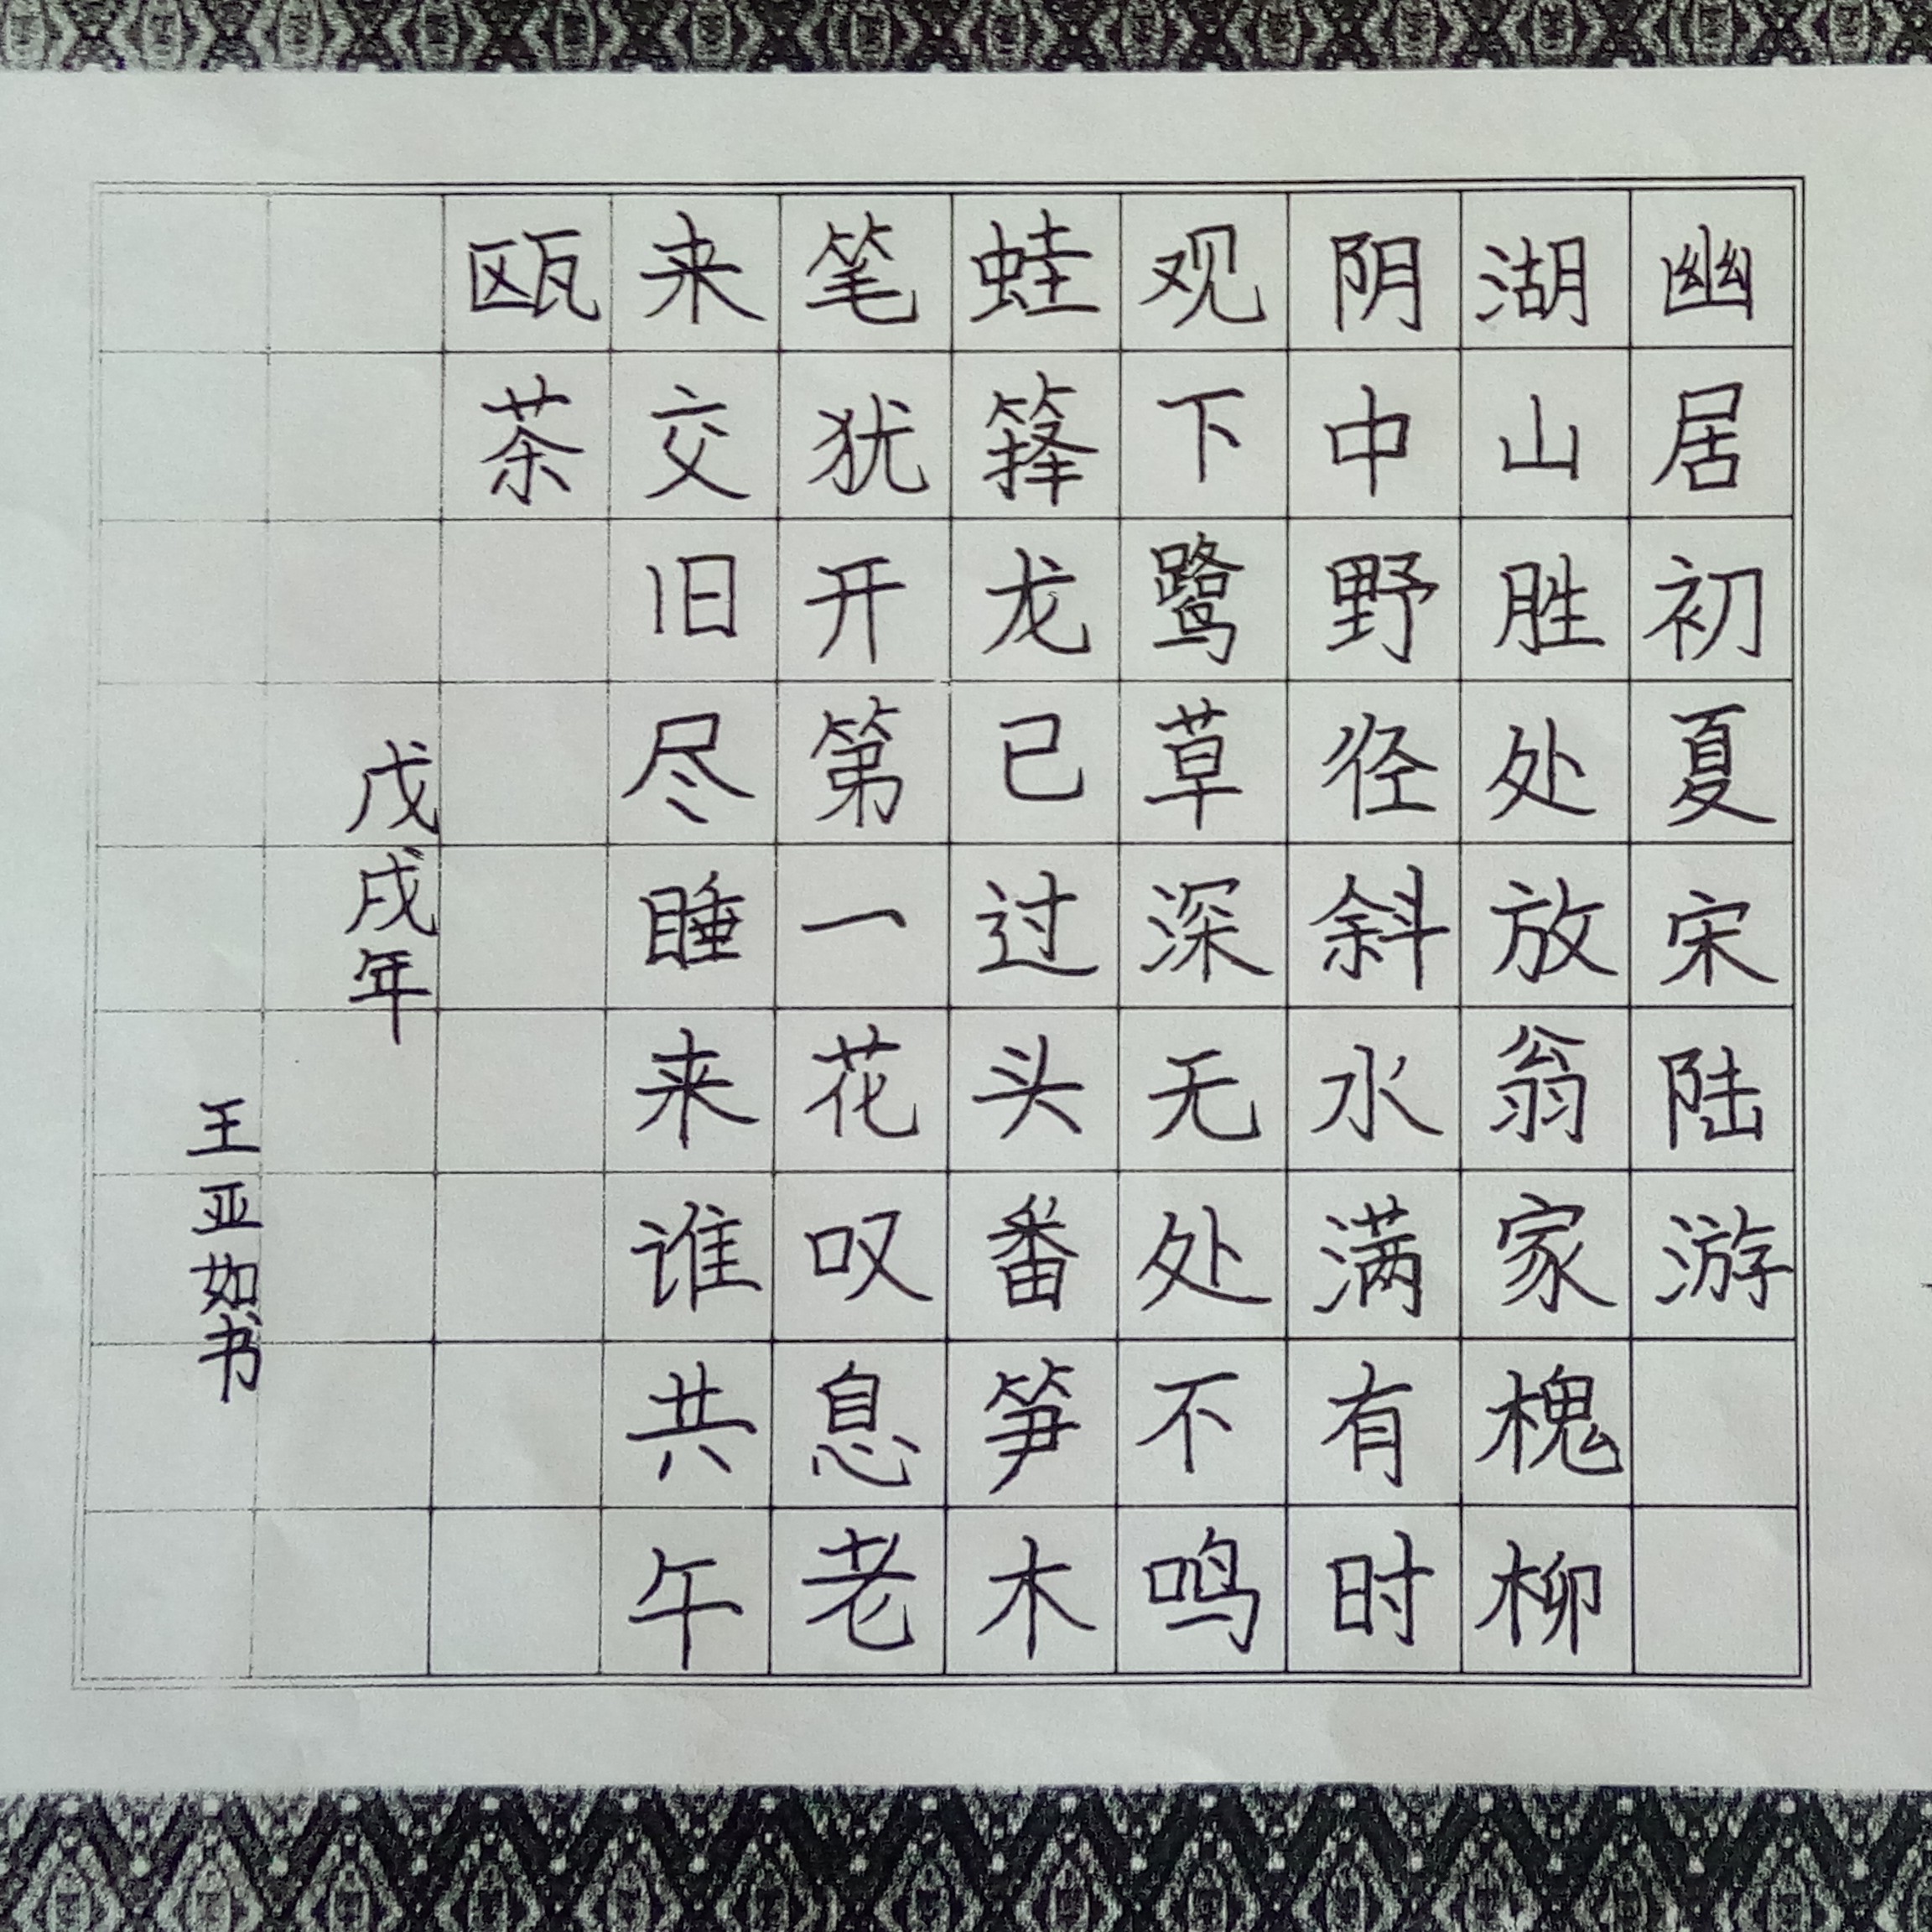 幽居初夏宋陆游
湖山胜处放翁家槐柳
阴中野径斜水满有时
观下鹭草深无处不鸣
蛙箨龙已过头番笋木
笔犹开第一花叹息老
来交旧尽睡来谁共午
瓯茶
戊戌年
王亚如书